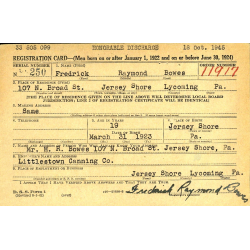 33 505 099 HONORABLE DISCHARGE 18 Oct. 1945
REGISTRATION CARD—(Men born on or after January 1, 1922 and on or before June 30, 1924)
SERIAL NUMBER 1. NAME (Print) ORDER NUMBER
250 Fredrick Raymond Bowes 11977
2. PLACE OF RESIDENCE (Print)
107 N. Broad St. Jersey Shore Lycoming Pa.
[THE PLACE OF RESIDENCE GIVEN ON THE LINE ABOVE WILL DETERMINE LOCAL BOARD
JURISDICTION; LINE 2 OF REGISTRATION CERTIFICATE WILL BE IDENTICAL]
3. MAILING ADDRESS
Same
4. TELEPHONE 5. AGE IN YEARS 6. PLACE OF BIRTH
19 Jersey Shore
DATE OF BIRTH
March 31 1923 Pa.
7. NAME AND ADDRESS OF PERSON WHO WILL ALWAYS KNOW YOUR ADDRESS
Mr. H. R. Bowes 107 N. Broad St. Jersey Shore, Pa.
8. EMPLOYER'S NAME AND ADDRESS
Littlestown Canning Co.
9. PLACE OF EMPLOYMENT OR BUSINESS
Jersey Shore Lycoming Pa.
I AFFIRM THAT I HAVE VERIFIED ABOVE ANSWERS AND THAT THEY ARE TRUE.
Frederick Raymond Bowes